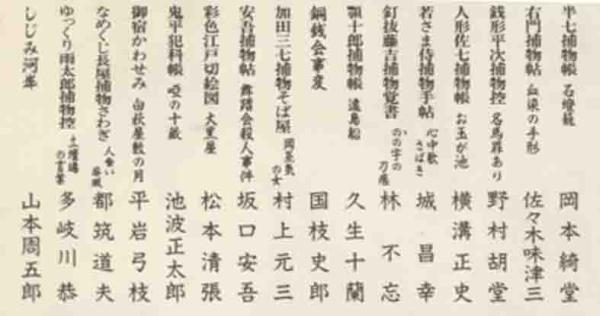 半七捕物帳 石燈籠 岡本綺堂
右門捕物帖 血染の手形 佐々木味津三
銭形平次捕物控 名馬罪あり 野村胡堂
人形佐七捕物帳 お玉が池 横溝正史
若さま侍捕物手帖 心中歌さばき 城昌幸
釘抜藤吉捕物覚書 のの字の刀痕 林不忘
顎十郎捕物帳 遠島船 久生十蘭
銅銭会事変 国枝史郎
加田三七捕物そば屋 岡茶気の女 村上元三
安吾捕物帖 舞踏会殺人事件 坂口安吾
彩色江戸切絵図 大黒屋 松本清張
鬼平犯科帳 唖の十蔵 池波正太郎
御宿かわせみ 白萩屋敷の月 平岩弓枝
なめくじ長屋捕物さわぎ 人食い屏風 都筑道夫
ゆっくり雨太郎捕物控 土壇場の言葉 多岐川恭
しじみ河岸 山本周五郎